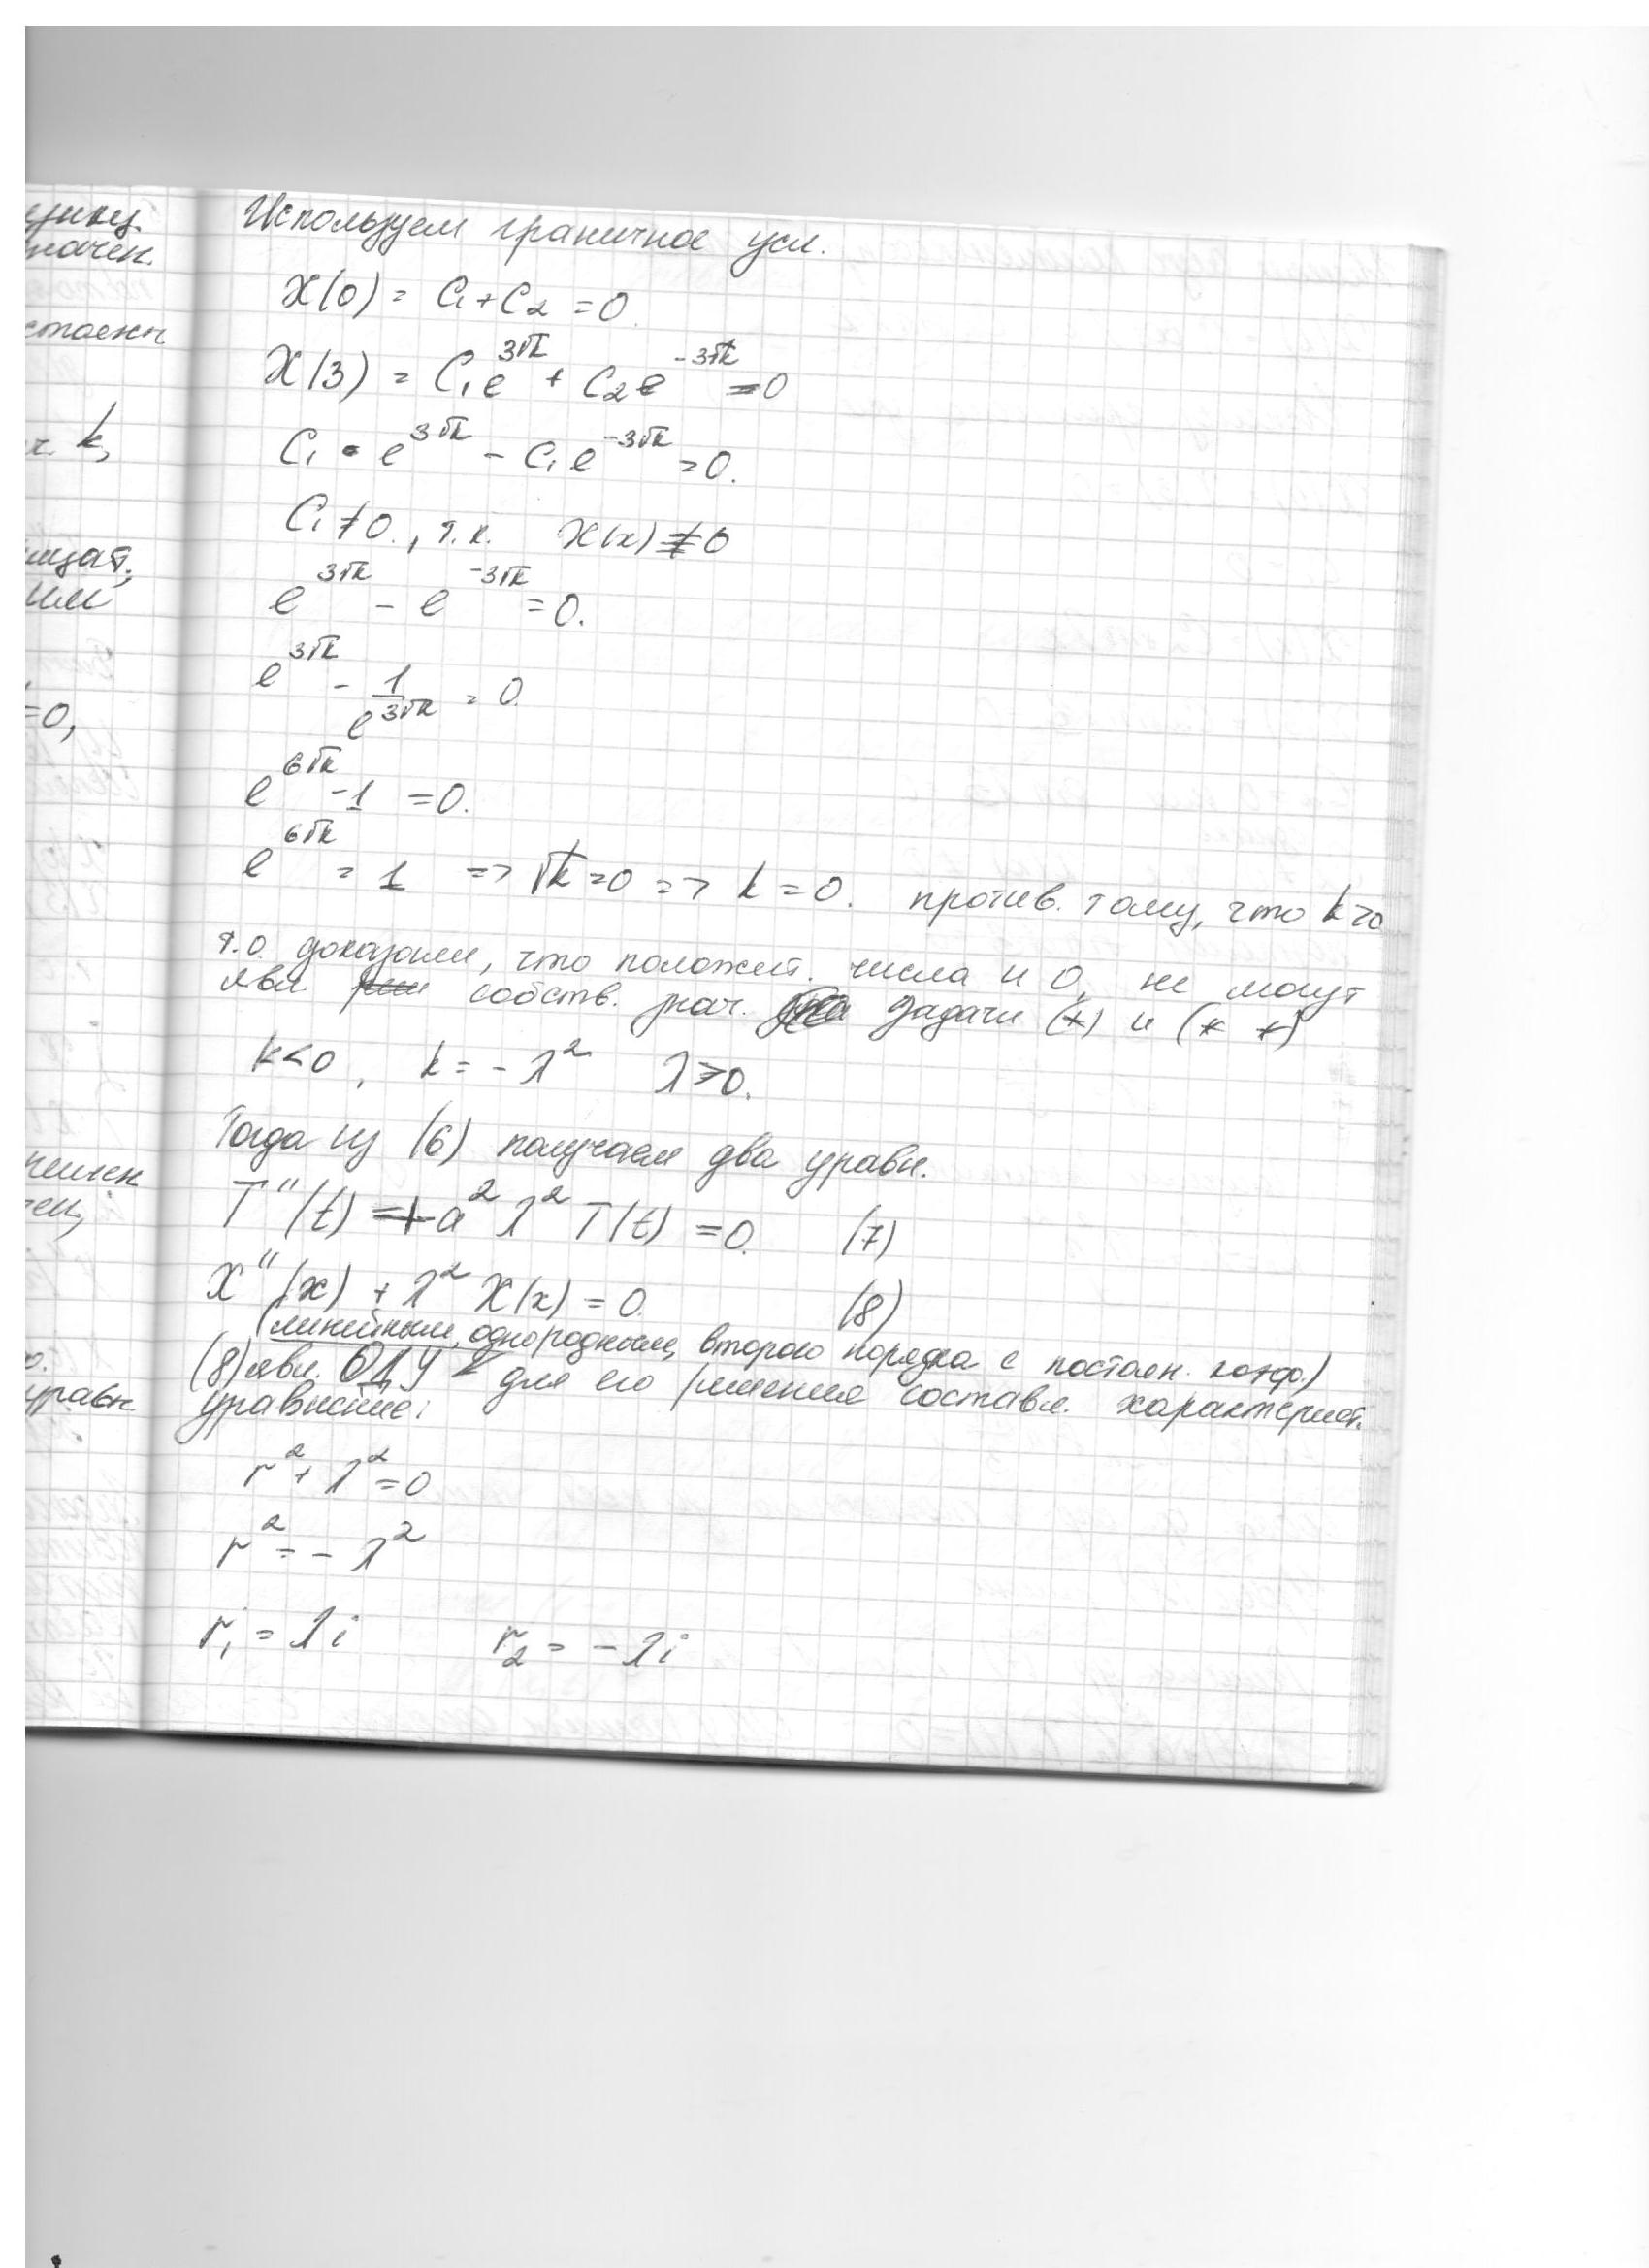 Используем граничное усл.
X(0) = C₁ + C₂ = 0.
X(3) = C₁e^{3√k} + C₂e^{-3√k} = 0
C₁ · e^{3√k} - C₁e^{-3√k} = 0.
C₁ ≠ 0., т.к. X(x) ≢ 0
e^{3√k} - e^{-3√k} = 0.
e^{3√k} - 1/e^{3√k} = 0
e^{6√k} - 1 = 0.
e^{6√k} = 1 => √k = 0 => k = 0. против. тому, что k>0
т.о. доказали, что положит. числа и 0, не могут
явл собств. знач. задачи (*) и (* *)
k<0, k = - λ² λ>0.
Тогда из (6) получаем два уравн.
T''(t) + a² λ² T(t) = 0. (7)
X''(x) + λ² X(x) = 0. (8)
(линейным, однородным, второго порядка с постоян. коэф.)
(8) явл. ОДУ для его решения составл. характерист.
уравнение:
r² + λ² = 0
r² = - λ²
r₁ = λi r₂ = - λi
начен.
k,
=0,
уравн.